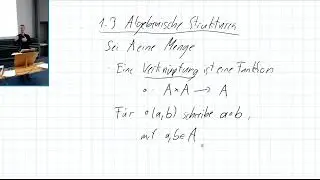 1.3 Algebraische Strukturen
Sei A eine Menge
- Eine Verknüpfung ist eine Funktion
∘ A × A → A
Für ∘(a,b) schreibe a∘b,
mit a,b ∈ A